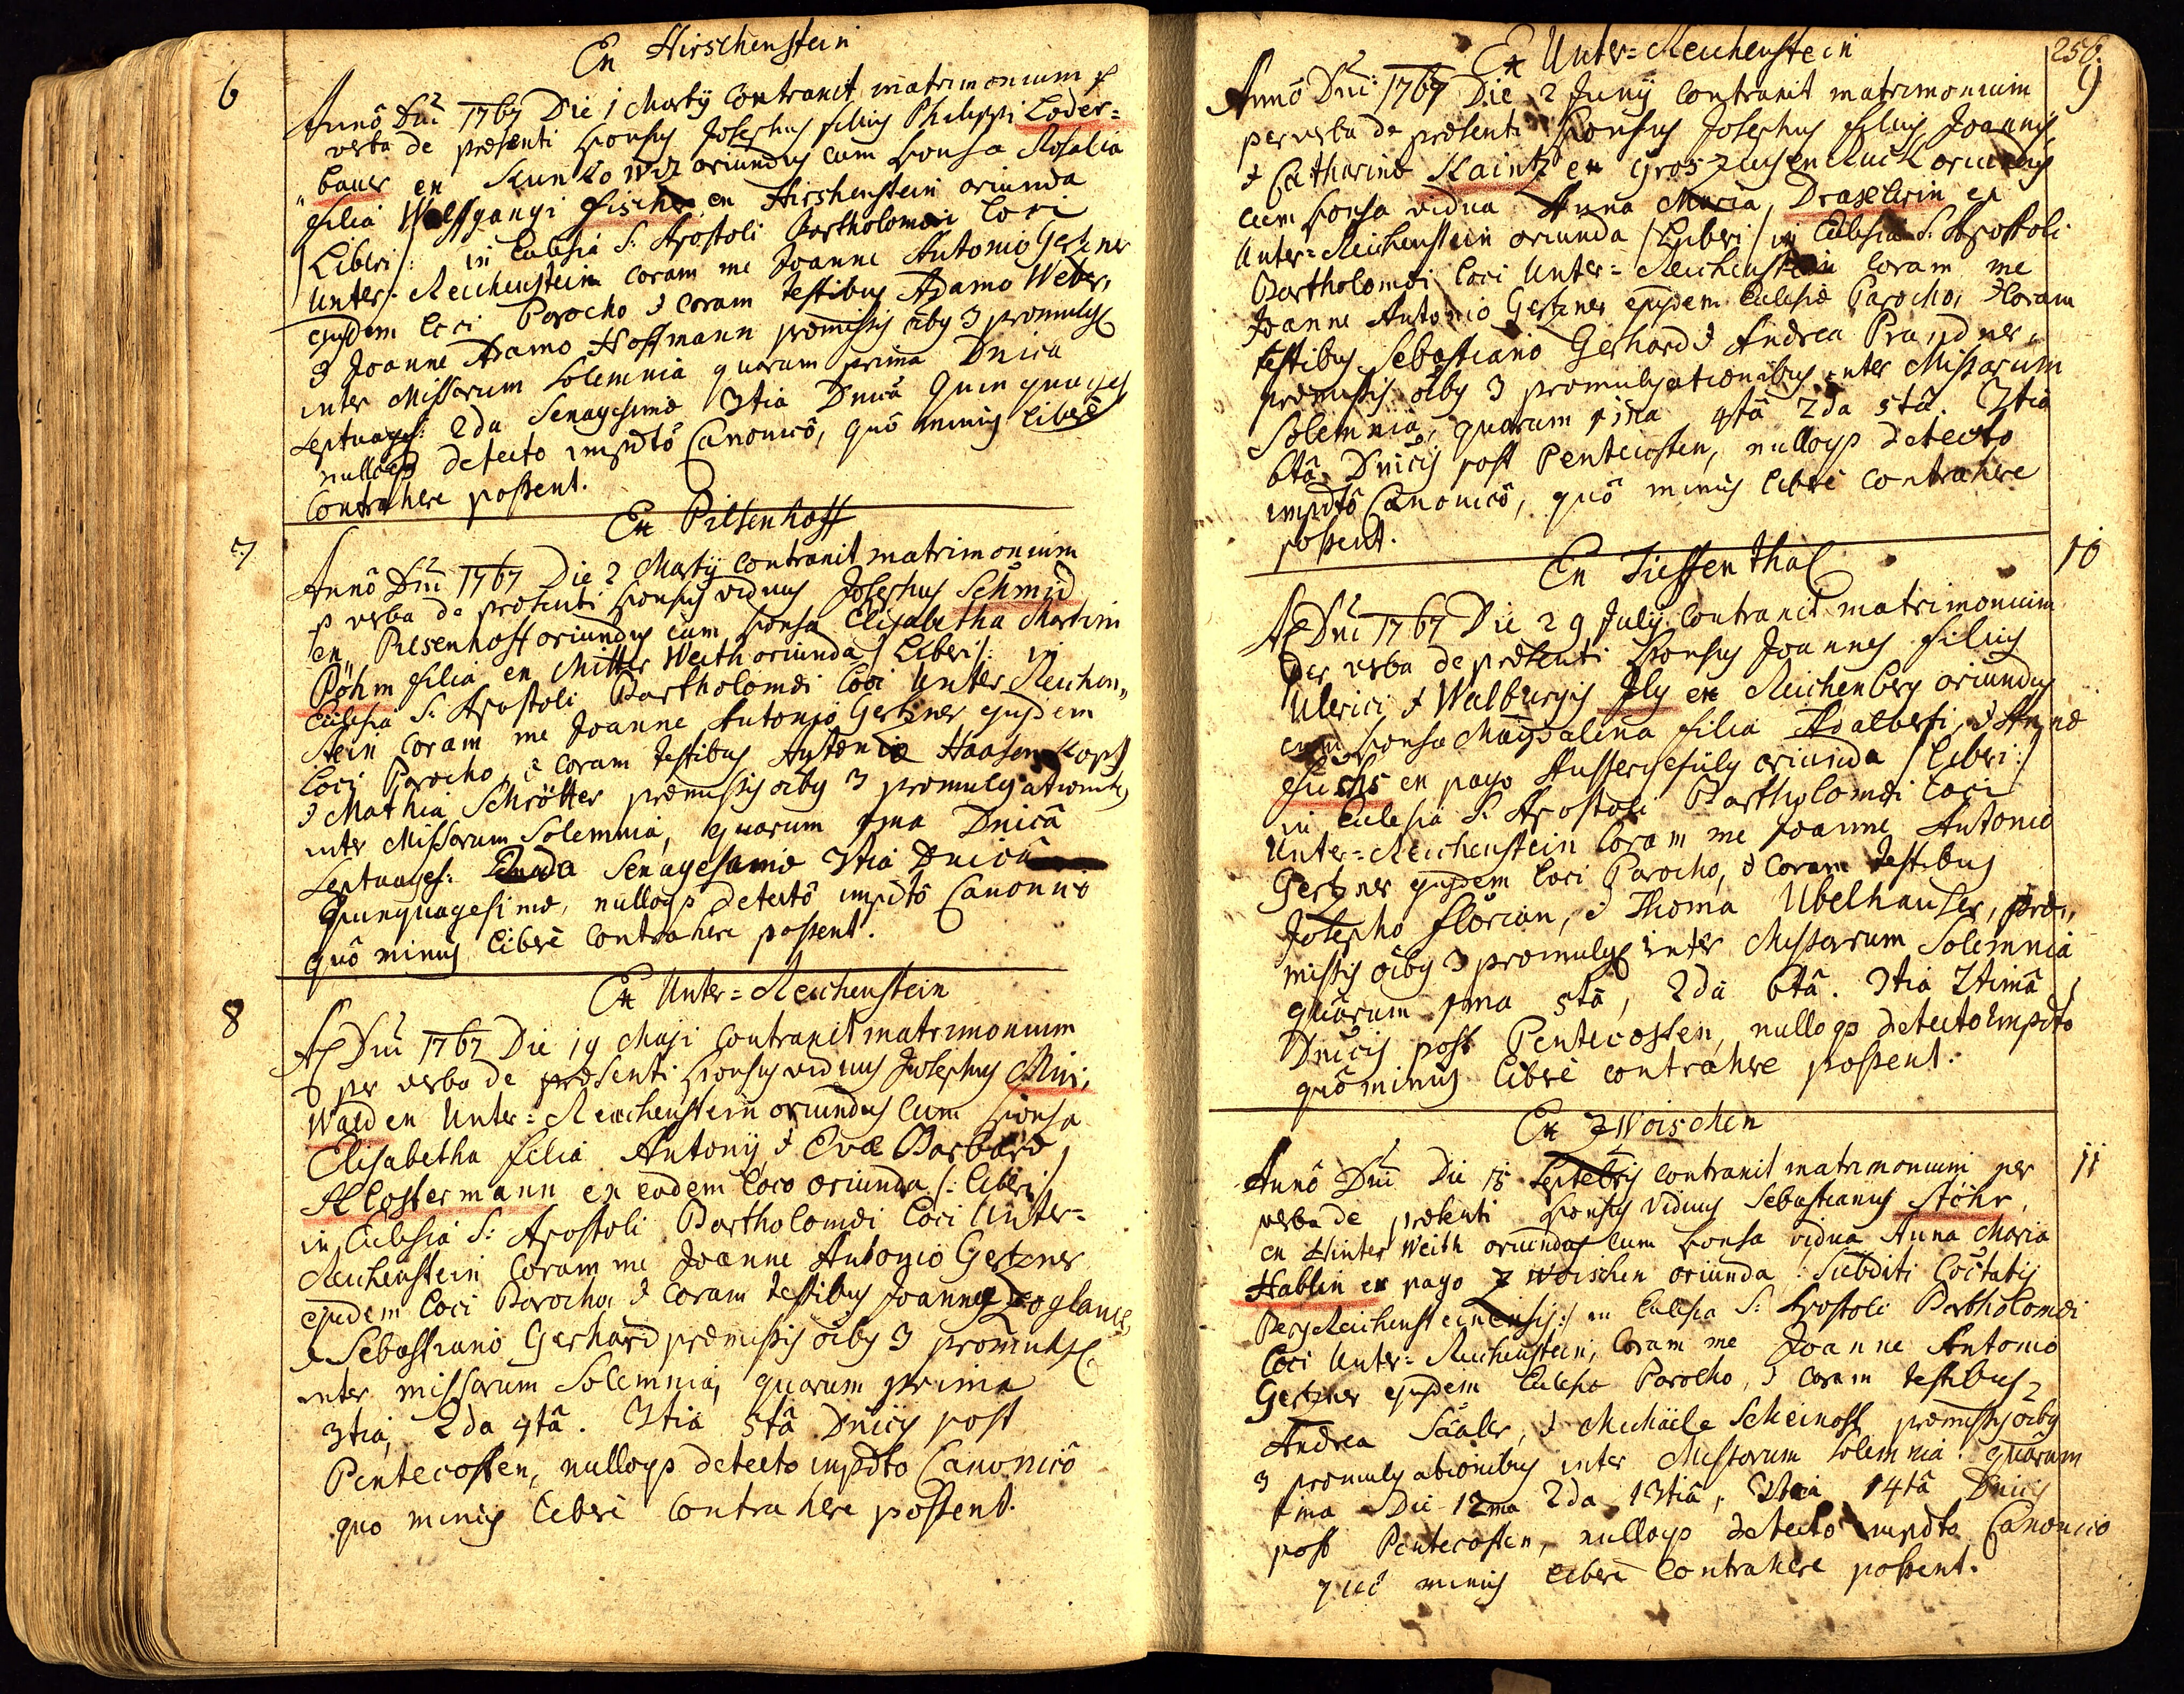 Ex Hirschenstein
6
Annô Dni 1767 Die 1 Martij Contraxit matrimonium p
verba de praesenti sponsus Josephus filius Philippi Loder=
bauer ex oriundus cum sponsa Rosalia
filia Wolffgangi Fischer ex Hirshenstein oriunda
/Liberi/: in Eclesia S: Apostoli Bartholomaei loci
Unter-Reichenstein coram me Joanne Antonio Gerzner
ejusdem loci Parocho & coram testibus Adamo Weber,
& Joanne Adamo Hoffmann praemissis oiby 3 promulg
inter Missarum Solemnia quarum prima Dnica
Septuages: 2da Sexagesimae 3tia Dnicâ Quinquages
nulloqp detecto impdtô Canonicô, quô minus liberè
Contrahere possent.
Ex Pilsenhoff
7
Annô Dni 1767 Die 2 Martij Contraxit matrimonium
p verba de praesenti sponsus viduus Josephus Schmid
ex Pilsenhoff oriundus cum sponsa Elisabetha Martini
Pöhm filia ex Mitter Weith oriunda /Liberi/: in
Eclesia S: Apostoli Bartholomaei loci Unter Reichen„
stein coram me Joanne Antonio Gerzner ejusdem
loci Parocho, & coram testibus Antonio Haasenkopf
& Mathia Schrötter praemissis oiby 3 promulgationibus
inter Missarum Solemnia, quarum 1ma Dnicâ
Septuages: 2da Sexagesimae 3tia Dnicâ
Quinquagesimae, nulloqp detectô impdtô Canonicô
quô minus liberè contrahere possent.
Ex Unter=Reichenstein
8
Aô Dni 1767 Die 19 Maji Contraxit matrimonium
per verba de praesenti sponsus viduus Josephus
Wald ex Unter=Reichenstein oriundus cum sponsa
Elisabetha filia Antonij & Evae Barbarae
Klostermann ex eodem loco oriunda /: liberi/
in Eclesia S: Apostoli Bartholomaei loci Unter=
Reichenstein coram me Joanne Antonio Gerzner
ejusdem loci Parocho, & coram testibus Joanne
& Sebastiano Gerhard praemissis oiby 3 promulg
inter missarum Solemnia, quarum prima
3tia, 2da 4tâ. 3tia 5tâ Dnicis post
Pentecosten, nulloqp detecto impdto Canonicô
quo minus liberè contrahere possent.
256.
Ex Unter=Reichenstein
9
Annô Dni: 1767 Die 2 Junij contraxit matrimonium
per verba de praesenti sponsus Josephus filius Joannis
& Catharinae Kaintz ex oriundus
cum sponsa vidua Anna Maria Draxlerin ex
Unter=Reichenstein oriunda /Liberi/ in Eclesia S: Apostoli
Bartholomaei loci Unter=Reichenstein coram me
Joanne Antonio Gerzner ejusdem Eclesiae Parocho, & coram
testibus Sebastiano Gerhard & Andrea Prandner,
praemissis oiby 3 promulgationibus inter Missarum
Solemnia, quarum 1ma 4tâ 2da 5tâ. 3tia
6tâ Dnicis post Pentecosten, nulloqp detecto
impdtô Canonicô, quô minus liberè contrahere
possent.
Ex Tieffenthal
10
Aô Dni 1767 Die 29 Julij contraxit matrimonium
per verba de praesenti sponsus Joannes filius
Ulrici & Walburgis Jly ex Reichenberg oriundus
cum sponsa Magdalena filia Adalberti, & Annae
Fuchs ex pago Aussergefüld oriunda /liberi:/
in Eclesia S: Apostoli Bartholomaei loci
Unter=Reichenstein coram me Joanne Antonio
Gerzner ejusdem loci Parocho, & coram testibus
Josepho Florian, & Thoma Ubelhauser, prae„
missis oiby 3 promulg inter Missarum Solemnia
quarum 1ma 5tâ, 2da 6tâ. 3tia 7timâ
Dnicis post Pentecosten, nulloqp detecto impdto
quô minus liberè contrahere possent.
Ex Zwoischen
11
Annô Dni Die 15 Septebris contraxit matrimonium per
verba de praesenti sponsus viduus Sebastianus Stöhr,
ex Hinter Weith oriundus cum sponsa vidua Anna Maria
Hablin ex pago Zwoischen oriunda: Subditi Cictatis
BergReichensteinensis:/ in Eclesia S: Apostoli Bartholomaei
loci Unter=Reichenstein, coram me Joanne Antonio
Gerzner ejusdem Eclesiae Parocho, & coram testibus
Andrea , & Michaele Scheinost praemissis oiby
3 promulgationibus inter Missarum Solemnia: quarum
1ma Die 12ma 2da 13tiâ, 3tia 14tâ Dnicis
post Pentecosten, nulloqp detecto impdto Canonico
quô minus liberè contrahere possent.